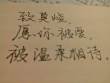 致莫峻
愿你被爱
被温柔相待